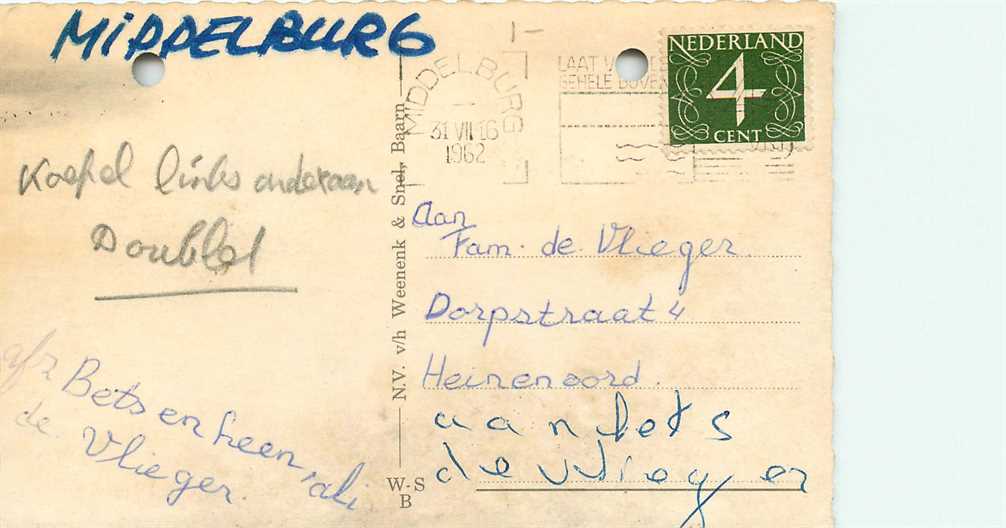 MIDDELBURG
Koepel links onderaan
Doublet
afz Bets en heen, ali
de Vlieger.
N.V. v/h Weenenk & Snel, Baarn
W-S
B
MIDDELBURG
31 VII 16
1962
LAAT V
GEHELE BOVEN
NEDERLAND
4
CENT
Aan
Fam. de Vlieger.
Dorpstraat 4
Heinenoord.
aan bets
de vlieger